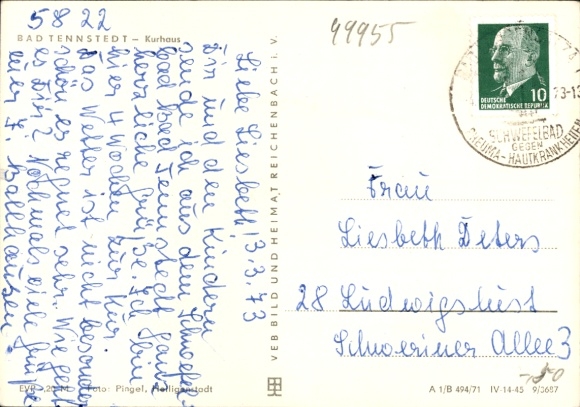 5822
BAD TENNSTEDT – Kurhaus
Liebe Liesbeth! 3.3.73
Dir und den Kindern
sende ich aus dem Schwefel
bad Bad Tennstedt
herzliche Grüße. Ich bin
hier 4 Wochen zur Kur.
Das Wetter ist nicht besonders
schön es regnet sehr. Wie geht
es Dir? Nochmals viele Grüße
VEB BILD UND HEIMAT REICHENBACH i. V.
EVP 0,20 M Foto: Pingel, Heiligenstadt
49955
10
DEUTSCHE
DEMOKRATISCHE REPUBLIK
73-13
SCHWEFELBAD
GEGEN
RHEUMA - HAUTKRANKHEITEN
Frau
Liesbeth Peters
28 Ludwigslust
Schweriner Allee 3
-,50
A 1/B 494/71 IV-14-45 9/3687